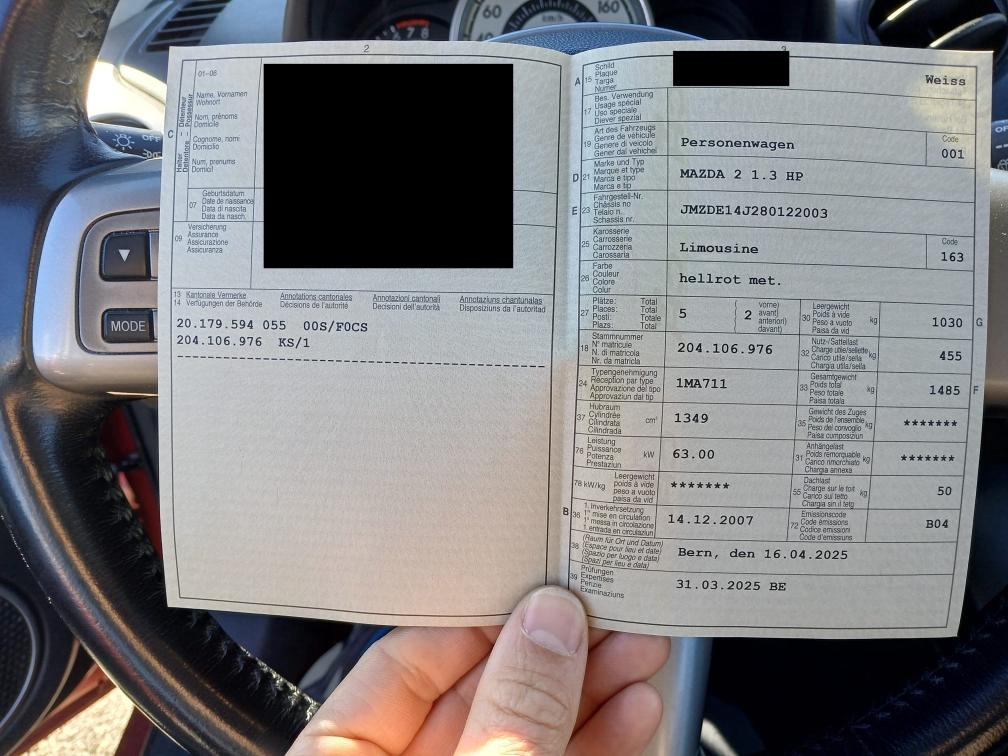 60
160
km/h
7 8
OFF
MODE
2
01–06
C
Halter Détenteur
Detentore Possessur
Name, Vornamen
Wohnort
Nom, prénoms
Domicile
Cognome, nomi
Domicilio
Num, prenums
Domicil
07
Geburtsdatum
Date de naissance
Data di nascita
Data da nasch.
09
Versicherung
Assurance
Assicurazione
Assicuranza
13 Kantonale Vermerke Annotations cantonales Annotazioni cantonali Annotaziuns chantunalas
14 Verfügungen der Behörde Décisions de l'autorité Decisioni dell'autorità Disposiziuns da l'autoritad
20.179.594 055 00S/F0CS
204.106.976 KS/1
3
A 15
Schild
Plaque
Targa
Numer
Weiss
17
Bes. Verwendung
Usage spécial
Uso speciale
Diever spezial
19
Art des Fahrzeugs
Genre de véhicule
Genere di veicolo
Gener dal vehichel
Personenwagen
Code
001
D 21
Marke und Typ
Marque et type
Marca e tipo
Marca e tip
MAZDA 2 1.3 HP
E 23
Fahrgestell-Nr.
Châssis no
Telaio n.
Schassis nr.
JMZDE14J280122003
25
Karosserie
Carrosserie
Carrozzeria
Carossaria
Limousine
Code
163
26
Farbe
Couleur
Colore
Colur
hellrot met.
27
Plätze: Total
Places: Total
Posti: Totale
Plazs: Total
5
2
vorne)
avant)
anteriori)
davant)
30
Leergewicht
Poids à vide
Peso a vuoto
Paisa da vid
kg
1030
G
18
Stammnummer
N° matricule
N. di matricola
Nr. da matricla
204.106.976
32
Nutz-/Sattellast
Charge utile/sellette
Carico utile/sella
Chargia utila/sella
kg
455
24
Typengenehmigung
Réception par type
Approvazione del tipo
Approvaziun dal tip
1MA711
33
Gesamtgewicht
Poids total
Peso totale
Paisa totala
kg
1485
F
37
Hubraum
Cylindrée
Cilindrata
Cilindrada
cm³
1349
35
Gewicht des Zuges
Poids de l'ensemble
Peso del convoglio
Paisa cumposiziun
kg
*******
76
Leistung
Puissance
Potenza
Prestaziun
kW
63.00
31
Anhängelast
Poids remorquable
Carico rimorchiato
Chargia annexa
kg
*******
78 kW/kg
Leergewicht
poids à vide
peso a vuoto
paisa da vid
*******
55
Dachlast
Charge sur le toit
Carico sul tetto
Chargia sin il tetg
kg
50
B 36
1. Inverkehrsetzung
1re mise en circulation
1a messa in circolazione
1. entrada en circulaziun
14.12.2007
72
Emissionscode
Code émissions
Codice emissioni
Code d'emissiuns
B04
38
(Raum für Ort und Datum)
(Espace pour lieu et date)
(Spazio per luogo e data)
(Spazi per lieu e data)
Bern, den 16.04.2025
39
Prüfungen
Expertises
Perizie
Examinaziuns
31.03.2025 BE